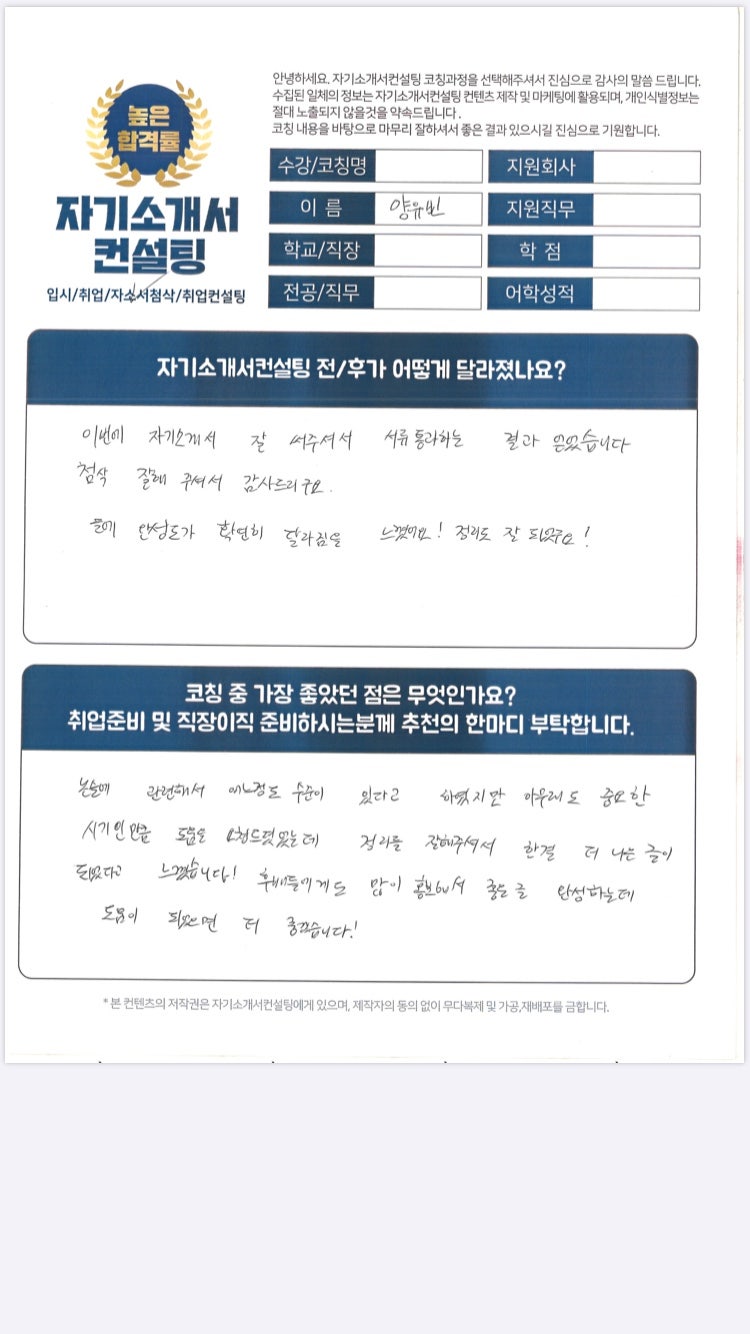 안녕하세요. 자기소개서컨설팅 코칭과정을 선택해주셔서 진심으로 감사의 말씀 드립니다.
수집된 일체의 정보는 자기소개서컨설팅 컨텐츠 제작 및 마케팅에 활용되며, 개인식별정보는
절대 노출되지 않을것을 약속드립니다.
코칭 내용을 바탕으로 마무리 잘하셔서 좋은 결과 있으시길 진심으로 기원합니다.
높은
합격률
자기소개서
컨설팅
입시/취업/자소서첨삭/취업컨설팅
수강/코칭명 지원회사
이 름 양유빈 지원직무
학교/직장 학 점
전공/직무 어학성적
자기소개서컨설팅 전/후가 어떻게 달라졌나요?
이번에 자기소개서 잘 써주셔서 서류통과하는 결과 얻었습니다
첨삭 잘해 주셔서 감사드리구요.
글에 완성도가 확연히 달라짐을 느꼈어요! 정리도 잘 되었구요!
코칭 중 가장 좋았던 점은 무엇인가요?
취업준비 및 직장이직 준비하시는분께 추천의 한마디 부탁합니다.
논술에 관련해서 어느정도 수준이 있다고 하였지만 아무래도 중요한
시기인만큼 도움을 요청드렸었는데 정리를 잘해주셔서 한결 더 나은 글이
되었다고 느꼈습니다! 후배들에게도 많이 홍보해서 좋은 글 완성하는데
도움이 되었으면 더 좋겠습니다!
* 본 컨텐츠의 저작권은 자기소개서컨설팅에게 있으며, 제작자의 동의 없이 무다복제 및 가공,재배포를 금합니다.